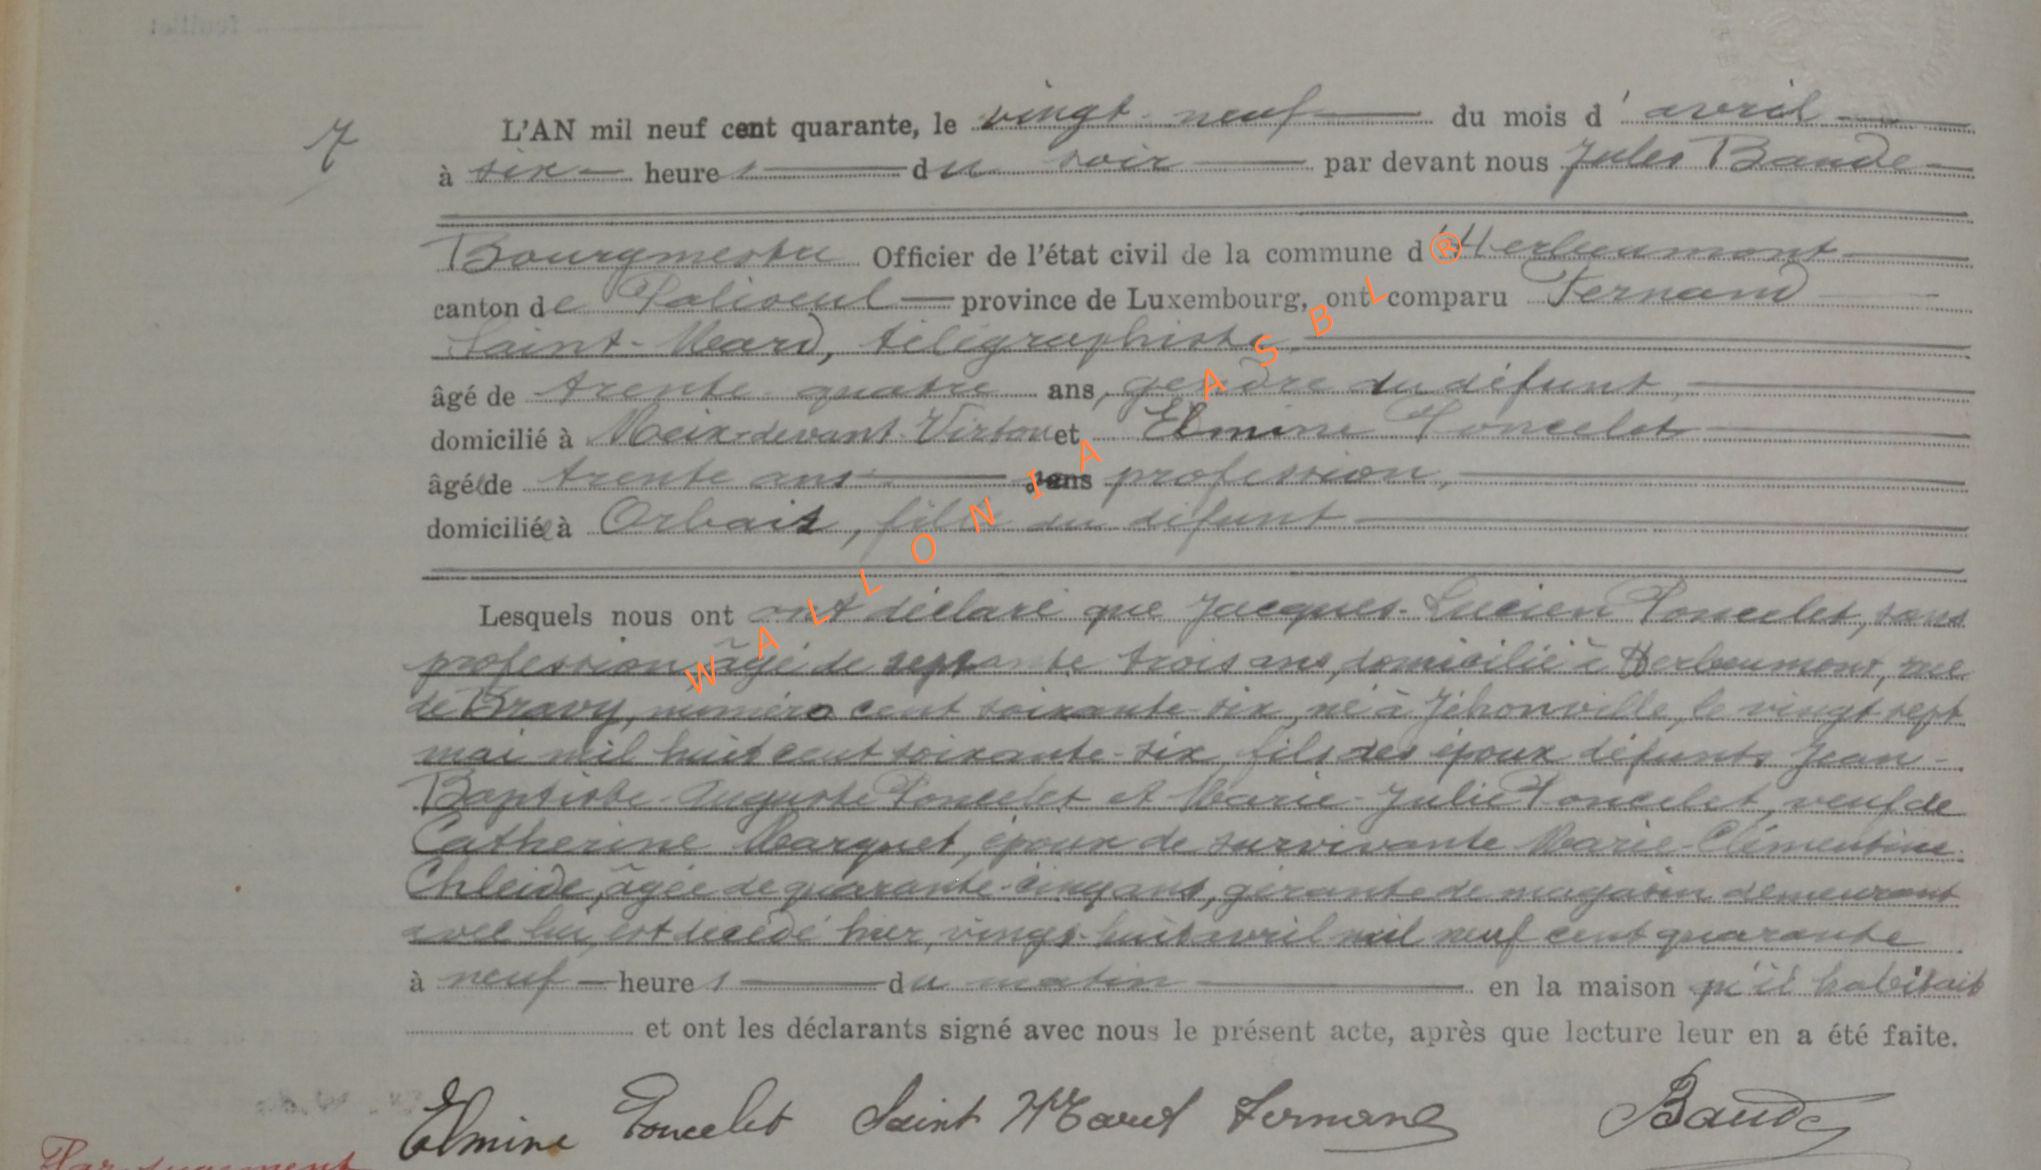 7
L'AN mil neuf cent quarante, le vingt-neuf du mois d'avril
à six heures du soir par devant nous Jules Baude
Bourgmestre Officier de l'état civil de la commune d'Herbeumont
canton de Paliseul province de Luxembourg, ont comparu Fernand
Saint-Mard, télégraphiste
âgé de trente-quatre ans, gendre du défunt,
domicilié à Meix-devant-Virton et Elmine Poncelet
âgée de trente ans sans profession,
domiciliée à Orbais, fille du défunt
Lesquels nous ont ont déclaré que Jacques-Lucien Poncelet, sans
profession, âgé de septante trois ans, domicilié à Herbeumont, rue
de Bravy, numéro cent soixante-six, né à Jéhonville, le vingt sept
mai mil huit cent soixante-six, fils des époux défunts Jean-
Baptiste-Auguste Poncelet et Marie-Julie Poncelet, veuf de
Catherine Marquet, époux de survivante Marie-Clémentine
Chleide, âgée de quarante-cinq ans, gérante de magasin demeurant
avec lui, est décédé hier, vingt-huit avril mil neuf cent quarante
à neuf heures du matin en la maison qu'il habitait
et ont les déclarants signé avec nous le présent acte, après que lecture leur en a été faite.
Elmine Poncelet Saint Mard Fernand Baude
WALLONIA ASBL ®